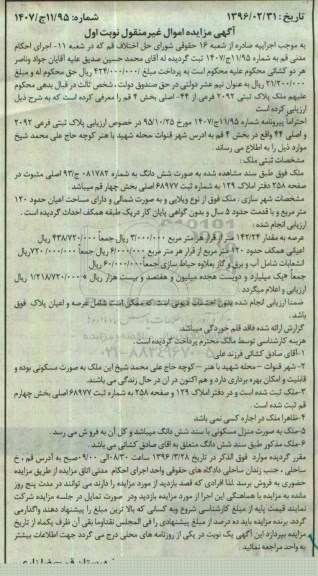 تاریخ : ۱۳۹۶/۰۲/۳۱ شماره: ۱۱/۹۵ج/۱۴۰۷
آگهی مزایده اموال غیرمنقول نوبت اول
به موجب اجراییه صادره از شعبه ۱۶ حقوقی شورای حل اختلاف قم که در شعبه ۱۱- اجرای احکام
مدنی قم به شماره ۱۱/۹۵ج/۱۴۰۷ ثبت گردیده له آقای محمد حسین صدیق علیه آقایان جواد وناصر
هر دو کشانی محکوم علیه محکوم است به پرداخت مبلغ ۴۲۴/۰۰۰/۰۰۰/ ریال حق محکوم له و مبلغ
۲۱/۲۰۰/۰۰۰ ریال به عنوان نیم عشر دولتی در حق صندوق دولت ، شخص ثالث در قبال بدهی محکوم
علیهم ملک پلاک ثبتی ۲۰۹۲ فرعی از ۴۴- اصلی بخش ۴ قم را معرفی کرده است که به شرح ذیل
ارزیابی کرده است
احتراماً پیرونامه شماره ۱۱/۹۵ج/۱۴۰۷ مورخ ۹۵/۱۰/۲۵ در خصوص ارزیابی پلاک ثبتی فرعی ۲۰۹۲
و اصلی ۴۴ واقع در بخش ۴ قم به ادرس شهر قنوات محله شهید با هنر کوچه حاج علی محمد شیخ
موارد ذیل را به اطلاع می رساند .
مشخصات ثبتی ملک :
ملک فوق طبق سند مشاهده شده به صورت شش دانگ به شماره ۰۸۱۷۸۲ ج/۹۳ اصلی مثبوت در
صفحه ۲۵۸ دفتر املاک ۱۲۹ به شماره ثبت ۶۸۹۷۷ اصلی بخش چهار قم میباشد
مشخصات شهر سازی : ملک فوق از نوع ویلایی و به صورت شمالی و دارای مساحت اعیان حدود ۱۲۰
متر مربع و با قدمت حدود ۵ سال و بدون گواهی پایان کار دریک طبقه همکف احداث گردیده است .
شرح ارزیابی :
عرصه به مقدار ۱۴۲/۲۴ متر از قرار هر متر مربع ۳/۰۰۰/۰۰۰ ریال جمعاً ۴۳۸/۷۲۰/۰۰۰ ریال
اعیانی همکف حدود ۱۲۰ متر مربع از قرار هر متر مربع ۶/۰۰۰/۰۰۰ ریال جمعاً ۷۲۰/۰۰۰/۰۰۰ ریال
انشعابات شامل آب و برق و گاز بعلاوه حیاط سازی جمعاً ۶۰/۰۰۰/۰۰۰ ریال
جمعاً «یک میلیارد و دویست هجده میلیون و هفتصد و بیست هزار ریال » ۱/۲۱۸/۷۲۰/۰۰۰ ریال
ارزیابی و اعلام میگردد .
ضمناً ارزیابی انجام شده بدون احتساب دیونی است که ممکن است شامل عرصه و اعیان پلاک فوق
باشد .
گزارش ارائه شده فاقد قلم خوردگی میباشد.
هزینه کارشناسی توسط مالک محترم پرداخت گردیده است
۱-آقای صادق کشانی فرزند علی
۲-شهر قنوات –محله شهید با هنر – کوچه حاج علی محمد شیخ این ملک به صورت مسکونی بوده و
قابلیت و امکان بهره برداری دارد و هم اکنون در آن در حال زندگی می باشند.
۳-ملک ثبت شده است و در دفتر املاک ۱۲۹ و صفحه ۲۵۸ به شماره ثبت ۶۸۹۷۷ اصلی بخش چهارم
قم ثبت شده است .
۴-ظاهراً ملک در اجاره کسی نمی باشد
۵-ملک به صورت منزل مسکونی با سند شش دانگ میباشد و کل آن به فروش می رسد .
۶-ملک مذکور طبق سند شش دانگ متعلق به آقای صادق کشانی می باشد .
مقرر گردیده موارد فوق الذکر در تاریخ ۱۳۹۶/۳/۲۸ ساعت ۸/۳۰ الی ۰۹/۰۰ صبح به آدرس قم ، خ
ساحلی ، جنب زندان ساحلی دادگاه های حقوقی واحد اجرای احکام مدنی اتاق مزایده از طریق مزایده
حضوری به فروش برسد .لذا افرادی که قصد بازدید از مورد مزایده را دارند می توانند در مدت پنج روز
مانده به مزایده با هماهنگی این اجرا از مورد مزایده بازدید ودر صورت تمایل در جلسه مزایده شرکت
نمایند قیمت پایه از مبلغ کارشناسی شروع وبه کسانی که بالا ترین مبلغ را پیشنهاد دهند واگذارمی
گردد. برنده مزایده باید ده درصد از مبلغ پیشنهادی را فی المجلس نقداومابقی آن ظرف یکماه از تاریخ
مزایده بپردازد این آگهی یک نوبت در یکی از روزنامه های محلی درج می گردد جهت اطلاعات بیشتر
به واحد مراجعه نمائید .